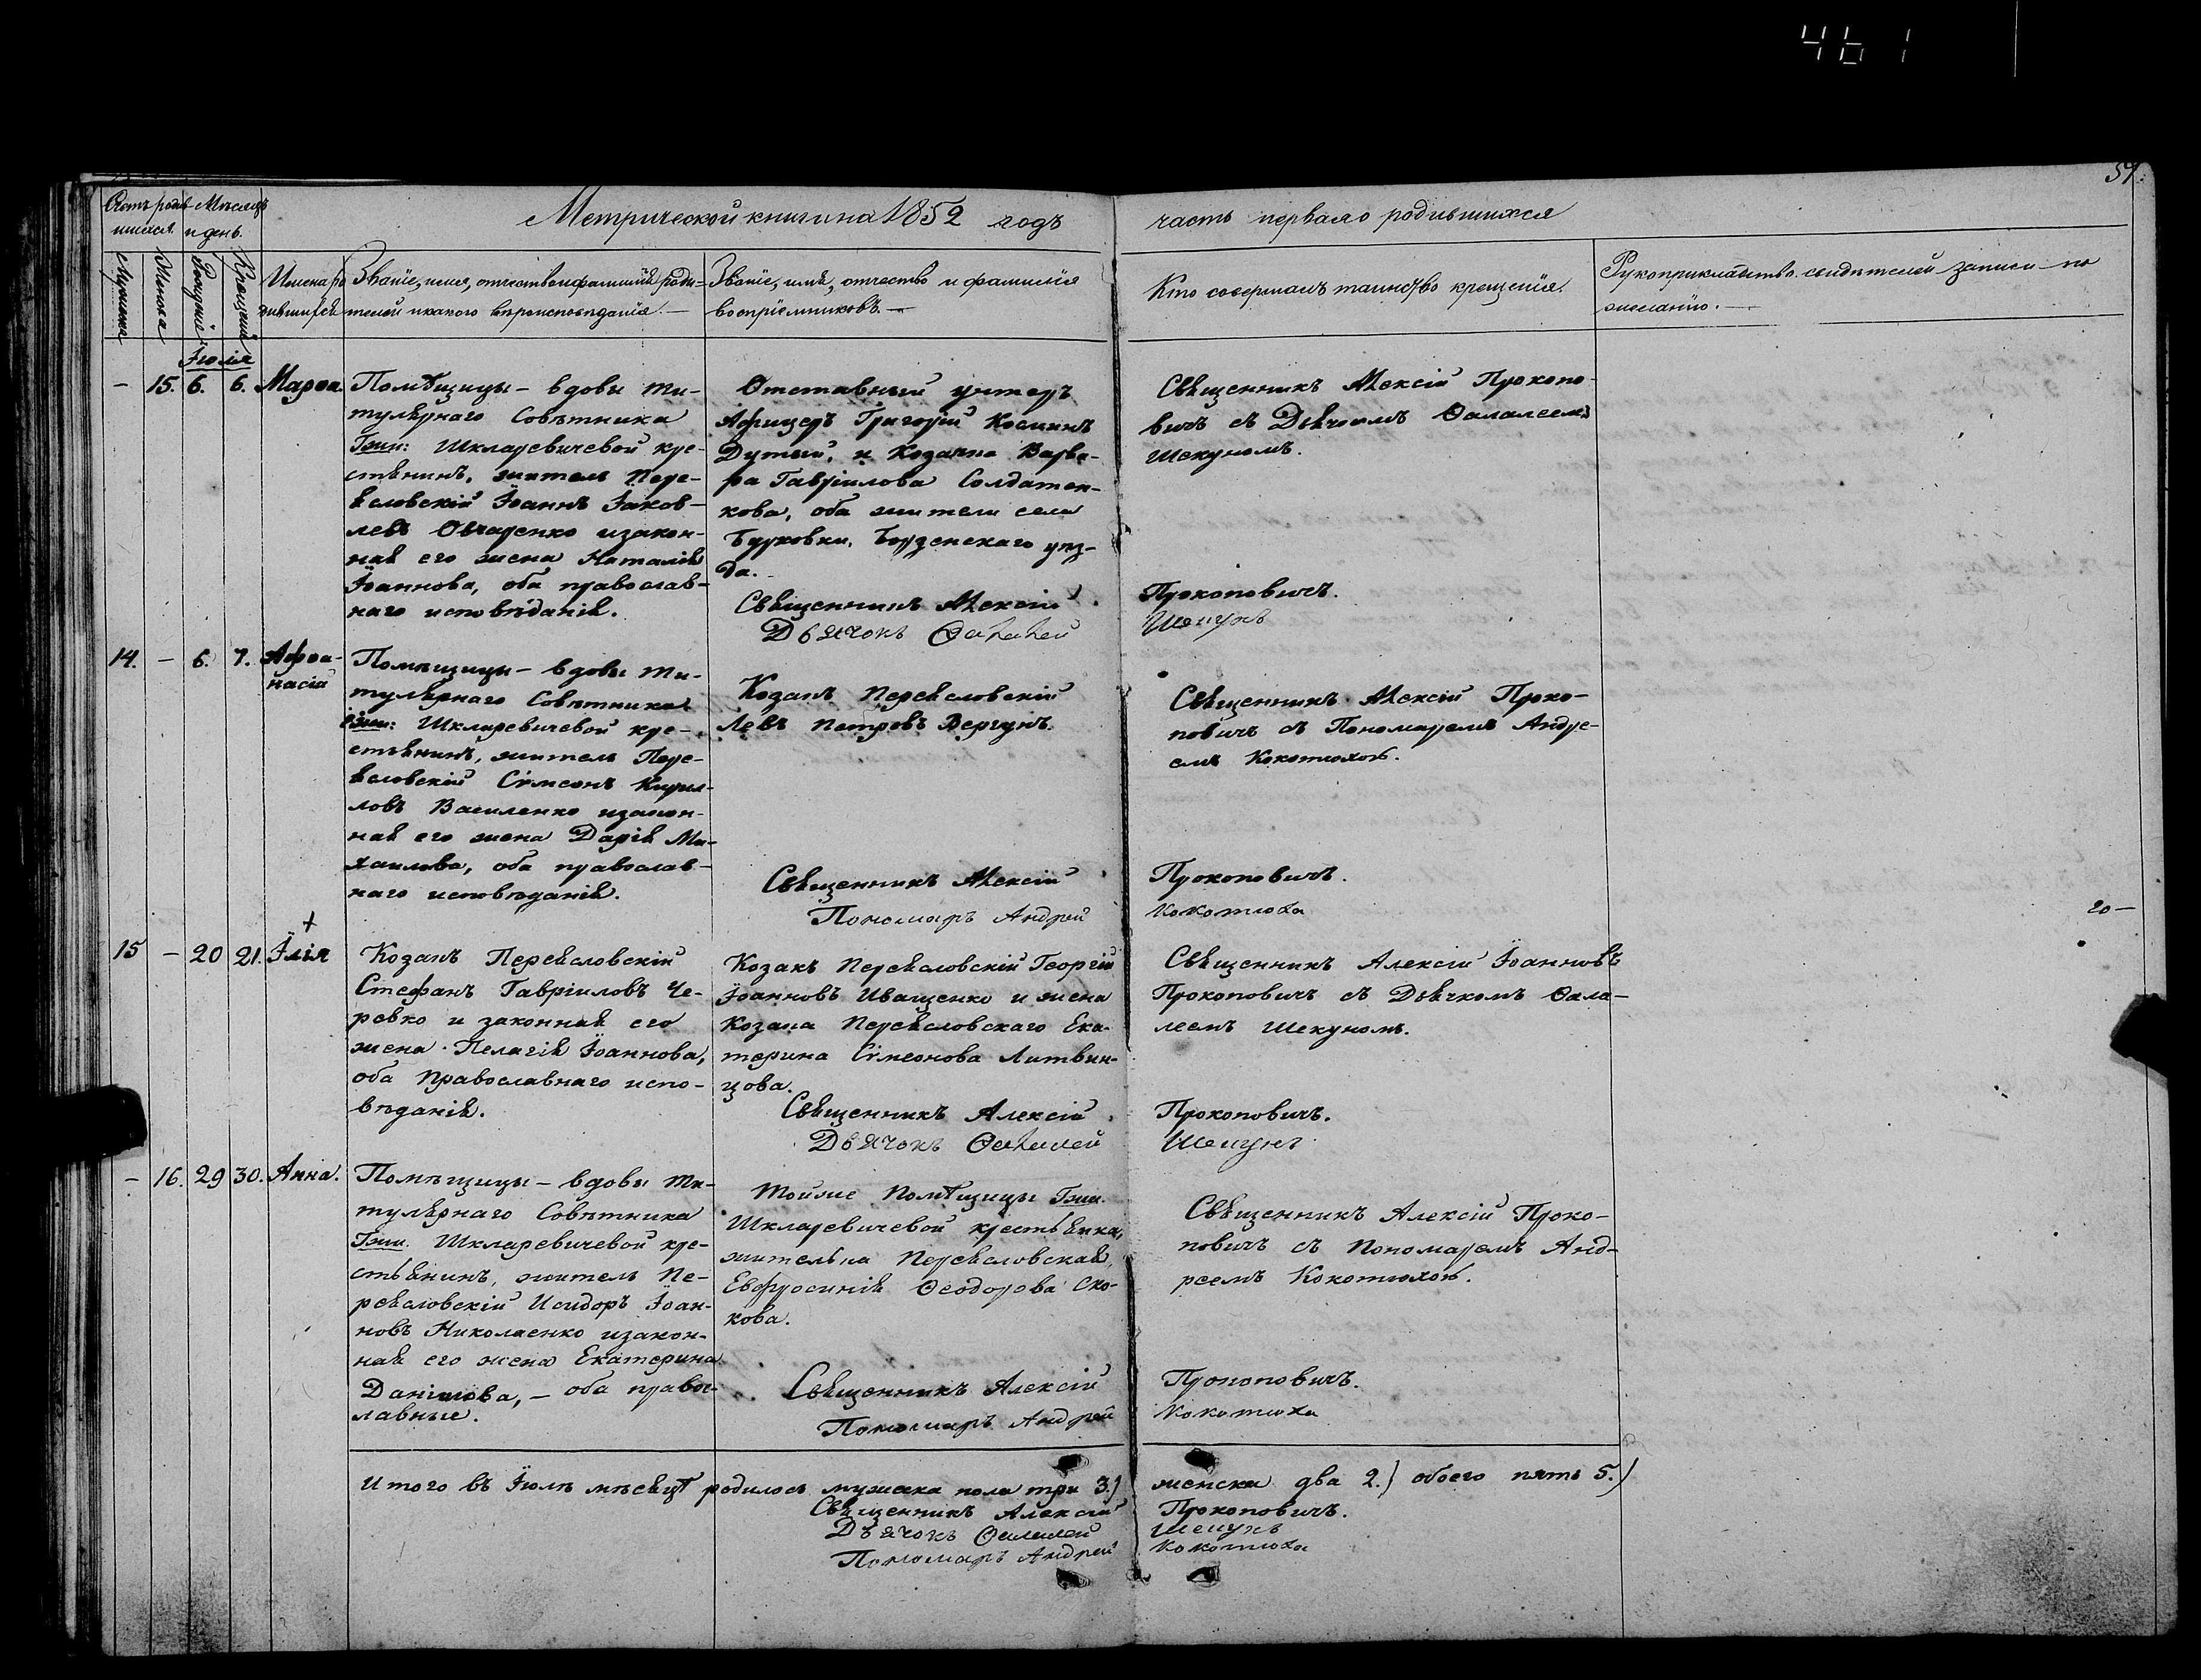 461
57.
Метрической книги на 1852 годъ
часть первая о родившихся
Счетъ родив- Мѣсяцъ
шихся. и день.
Мужеска
Женска
Рожденія
Крещенія
Имена ро
дившихся
Званіе, имя, отчество и фамилія роди-
телей и какого вѣроисповѣданія.—
Званіе, имя, отчество и фамилія
воспріемниковъ.—
Кто совершалъ таинство крещенія.
Рукоприкладство свидѣтелей записи по
желанію.—
Іюля
— 15. 6. 6. Марѳа
Помѣщицы — вдовы ти-
тулярнаго Совѣтника
Гжи: Шкляревичевой кре-
стьянинъ, житель Пере-
ясловскій Іоаннъ Іаков-
левъ Овчаренко и закон-
ная его жена Наталія
Іоаннова, оба православ-
наго исповѣданія.
Отставный унтеръ
Афицеръ Григорій Косминъ
Дутый, и Козачка Варва-
ра Гавріилова Солдатен-
кова, оба жители села
Бурковки, Борзенскаго уѣз-
да.
Священникъ Алексій
Дьячокъ Ѳалалей
Священникъ Алексій Прокопо-
вичъ съ Дьячкомъ Ѳалалеемъ
Шекуномъ.
Прокоповичъ.
Шекунъ
14. — 6. 7. Афоа-
насій
Помѣщицы — вдовы ти-
тулярнаго Совѣтника
Гжи: Шкляревичевой кре-
стьянинъ, житель Пере-
ясловскій Сѵмеонъ Кирил-
ловъ Василенко и закон-
ная его жена Дарія Ми-
хаилова, оба православ-
наго исповѣданія.
Козакъ Переясловскій
Левъ Петровъ Вергунъ.
Священникъ Алексій
Пономарь Андрей
Священникъ Алексій Проко-
повичъ съ Пономаремъ Андре-
емъ Кокотюхою.
Прокоповичъ.
Кокотюха
20 —
+
15 — 20 21. Ілія
Козакъ Переясловскій
Стефанъ Гавріиловъ Че-
ревко и законная его
жена Пелагія Іоаннова,
оба православнаго испо-
вѣданія.
Козакъ Переясловскій Георгій
Іоанновъ Иващенко и жена
Козака Переясловскаго Ека-
терина Сѵмеонова Литвин-
цова.
Священникъ Алексій
Дьячокъ Ѳалалей
Священникъ Алексій Іоанновъ
Прокоповичъ съ Дьячкомъ Ѳала-
леемъ Шекуномъ.
Прокоповичъ.
Шекунъ
— 16. 29 30. Анна.
Помѣщицы — вдовы ти-
тулярнаго Совѣтника
Гжи. Шкляревичевой кре-
стьянинъ, житель Пе-
реясловскій Исидоръ Іоан-
новъ Николаенко и закон-
ная его жена Екатерина
Даніилова, — оба правос-
лавные.
Тойже Помѣщицы Гжи.
Шкляревичевой крестьянка,
жителька Переясловская,
Евфросинія Ѳеодорова Ско-
кова.
Священникъ Алексій
Пономарь Андрей
Священникъ Алексій Проко-
повичъ съ Пономаремъ Анд-
реемъ Кокотюхою.
Прокоповичъ.
Кокотюха
Итого въ Іюлѣ мѣсяцѣ родилось мужеска пола три 3.) женска два 2.) обоего пять 5.)
Священникъ Алексій Прокоповичъ.
Дьячокъ Ѳалалей Шекунъ
Пономарь Андрей Кокотюха